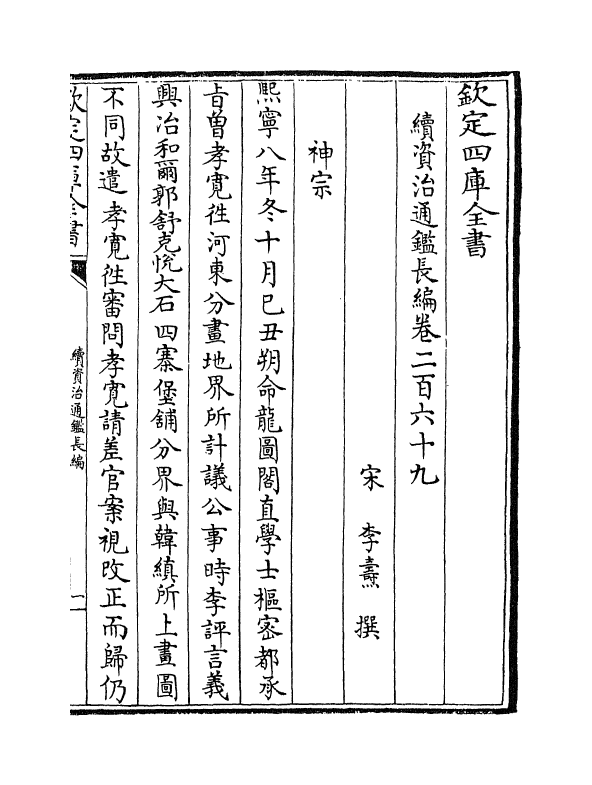 欽定四庫全書
續資治通鑑長編卷二百六十九
宋 李燾 撰
神宗
熙寧八年冬十月己丑朔命龍圖閣直學士樞密都承
旨曽孝寛徃河東分畫地界所計議公事時李評言義
興冶和爾郭舒克悅大石四寨堡舖分界與韓縝所上畫圖
不同故遣孝寛徃審問孝寛請差官案視改正而歸仍
欽定四庫全書
續資治通鑑長編
一